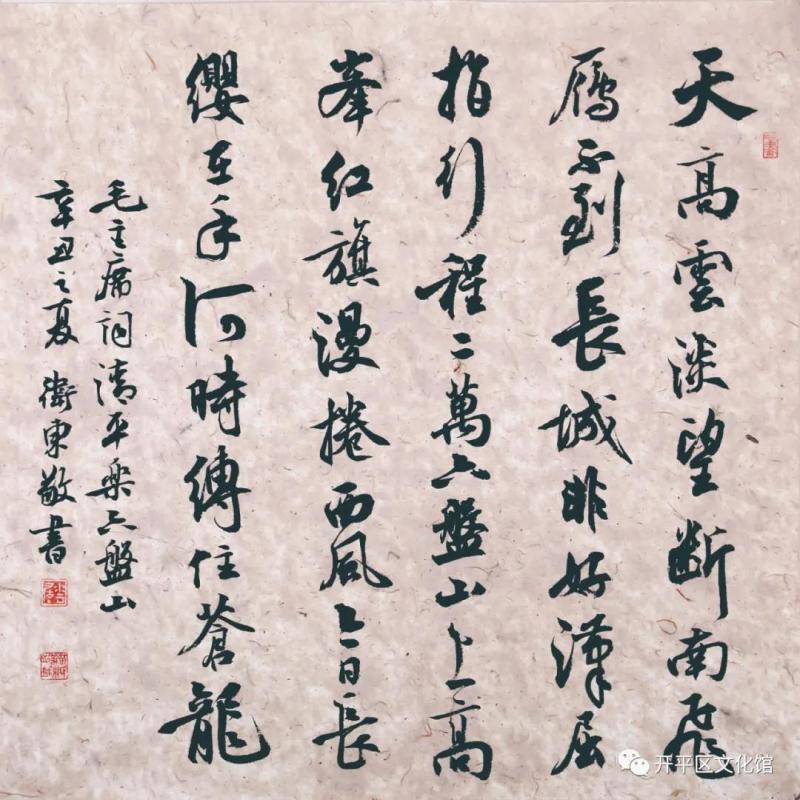 天高雲淡望断南飛
雁不到長城非好漢屈
指行程二萬六盤山上高
峯紅旗漫捲西風今日長
纓在手何時縛住蒼龍
毛主席詞清平樂六盤山
辛丑之夏衛東敬書
开平区文化馆